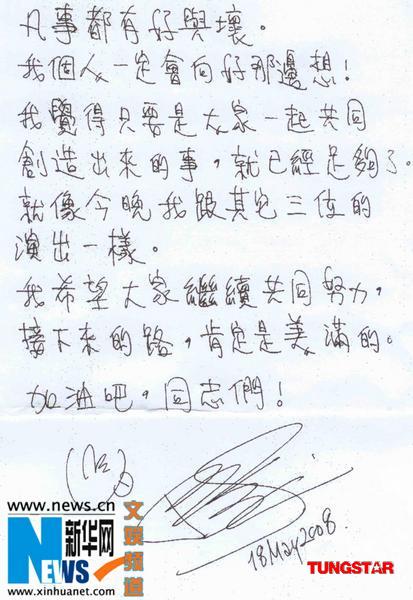 凡事都有好與壞。
我個人一定會向好那邊想!
我覺得只要是大家一起共同
創造出來的事,就已經足夠了。
就像今晚我跟其它三位的
演出一樣。
我希望大家繼續共同努力,
接下來的路,肯定是美滿的。
加油吧,同志們!
18May2008.
www.news.cn
NEWS
新华网
www.xinhuanet.com
文娱频道
TUNGSTAR